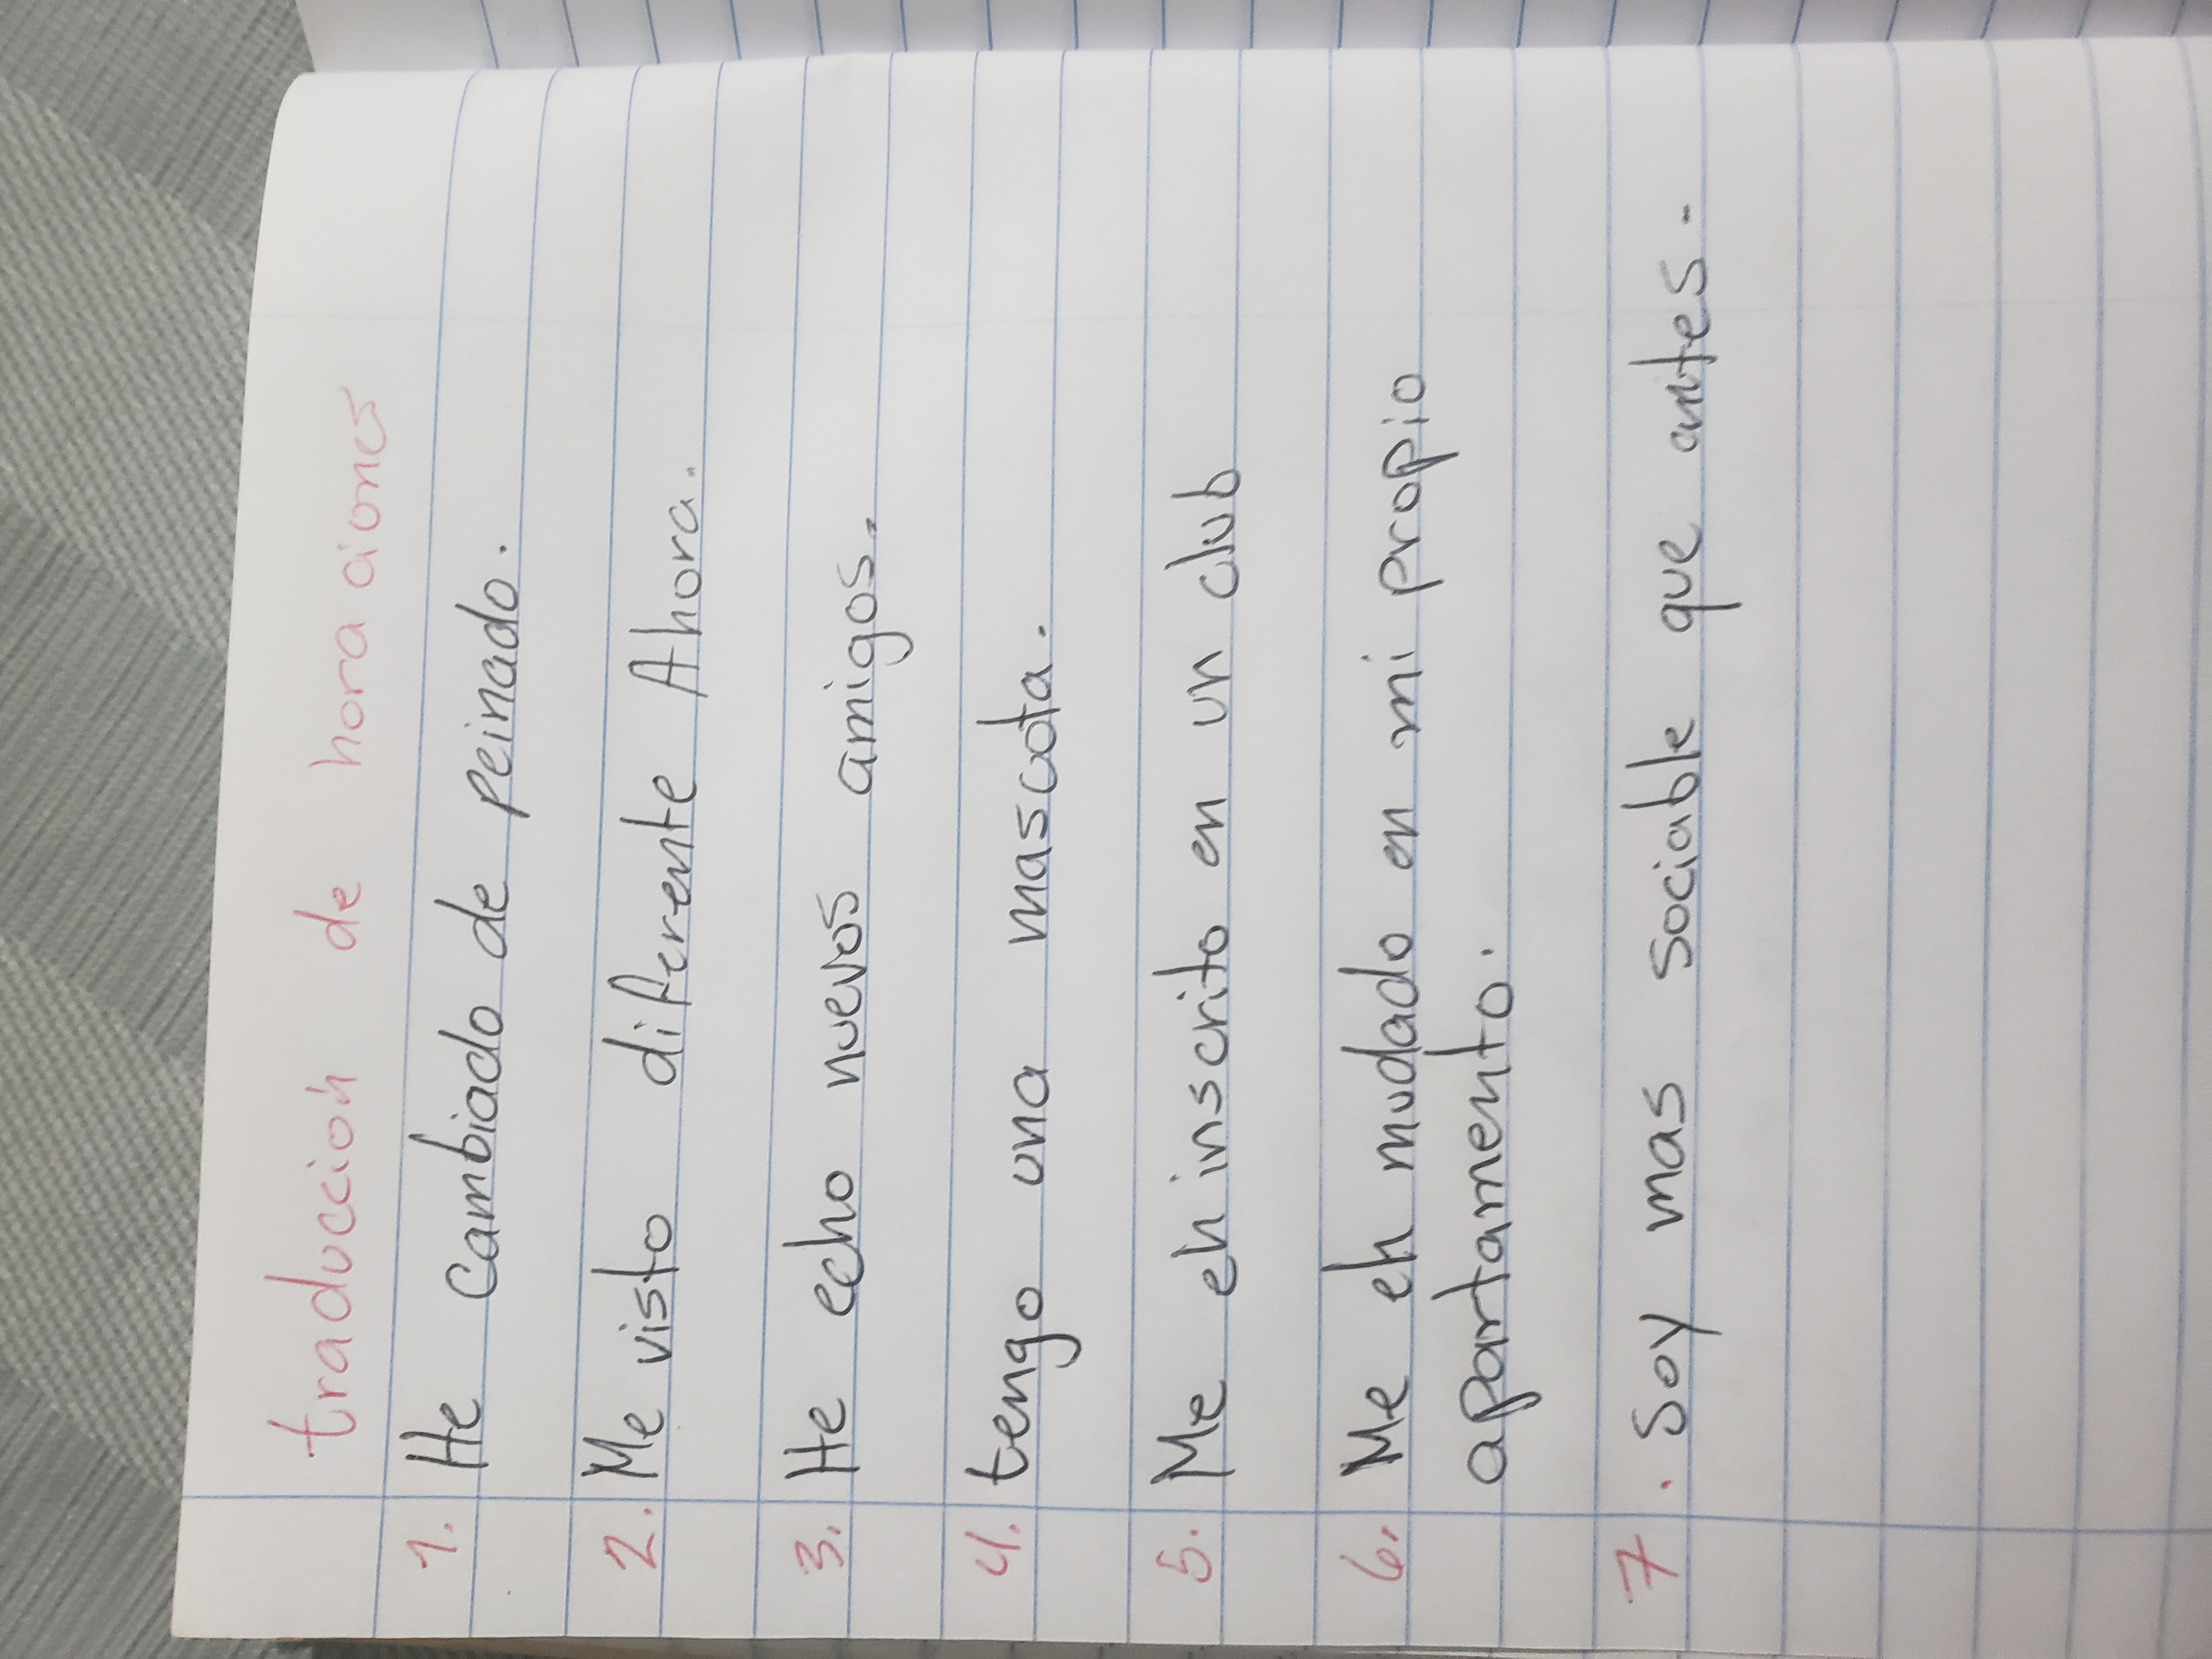 traduccion de hora ciones
1. He Cambiado de peinado.
2. Me visto diferente Ahora.
3. He echo nuevos amigos.
4. tengo una mascota.
5. Me eh inscrito en un club
6. Me eh mudado en mi propio
apartamento.
7. Soy mas sociable que antes.